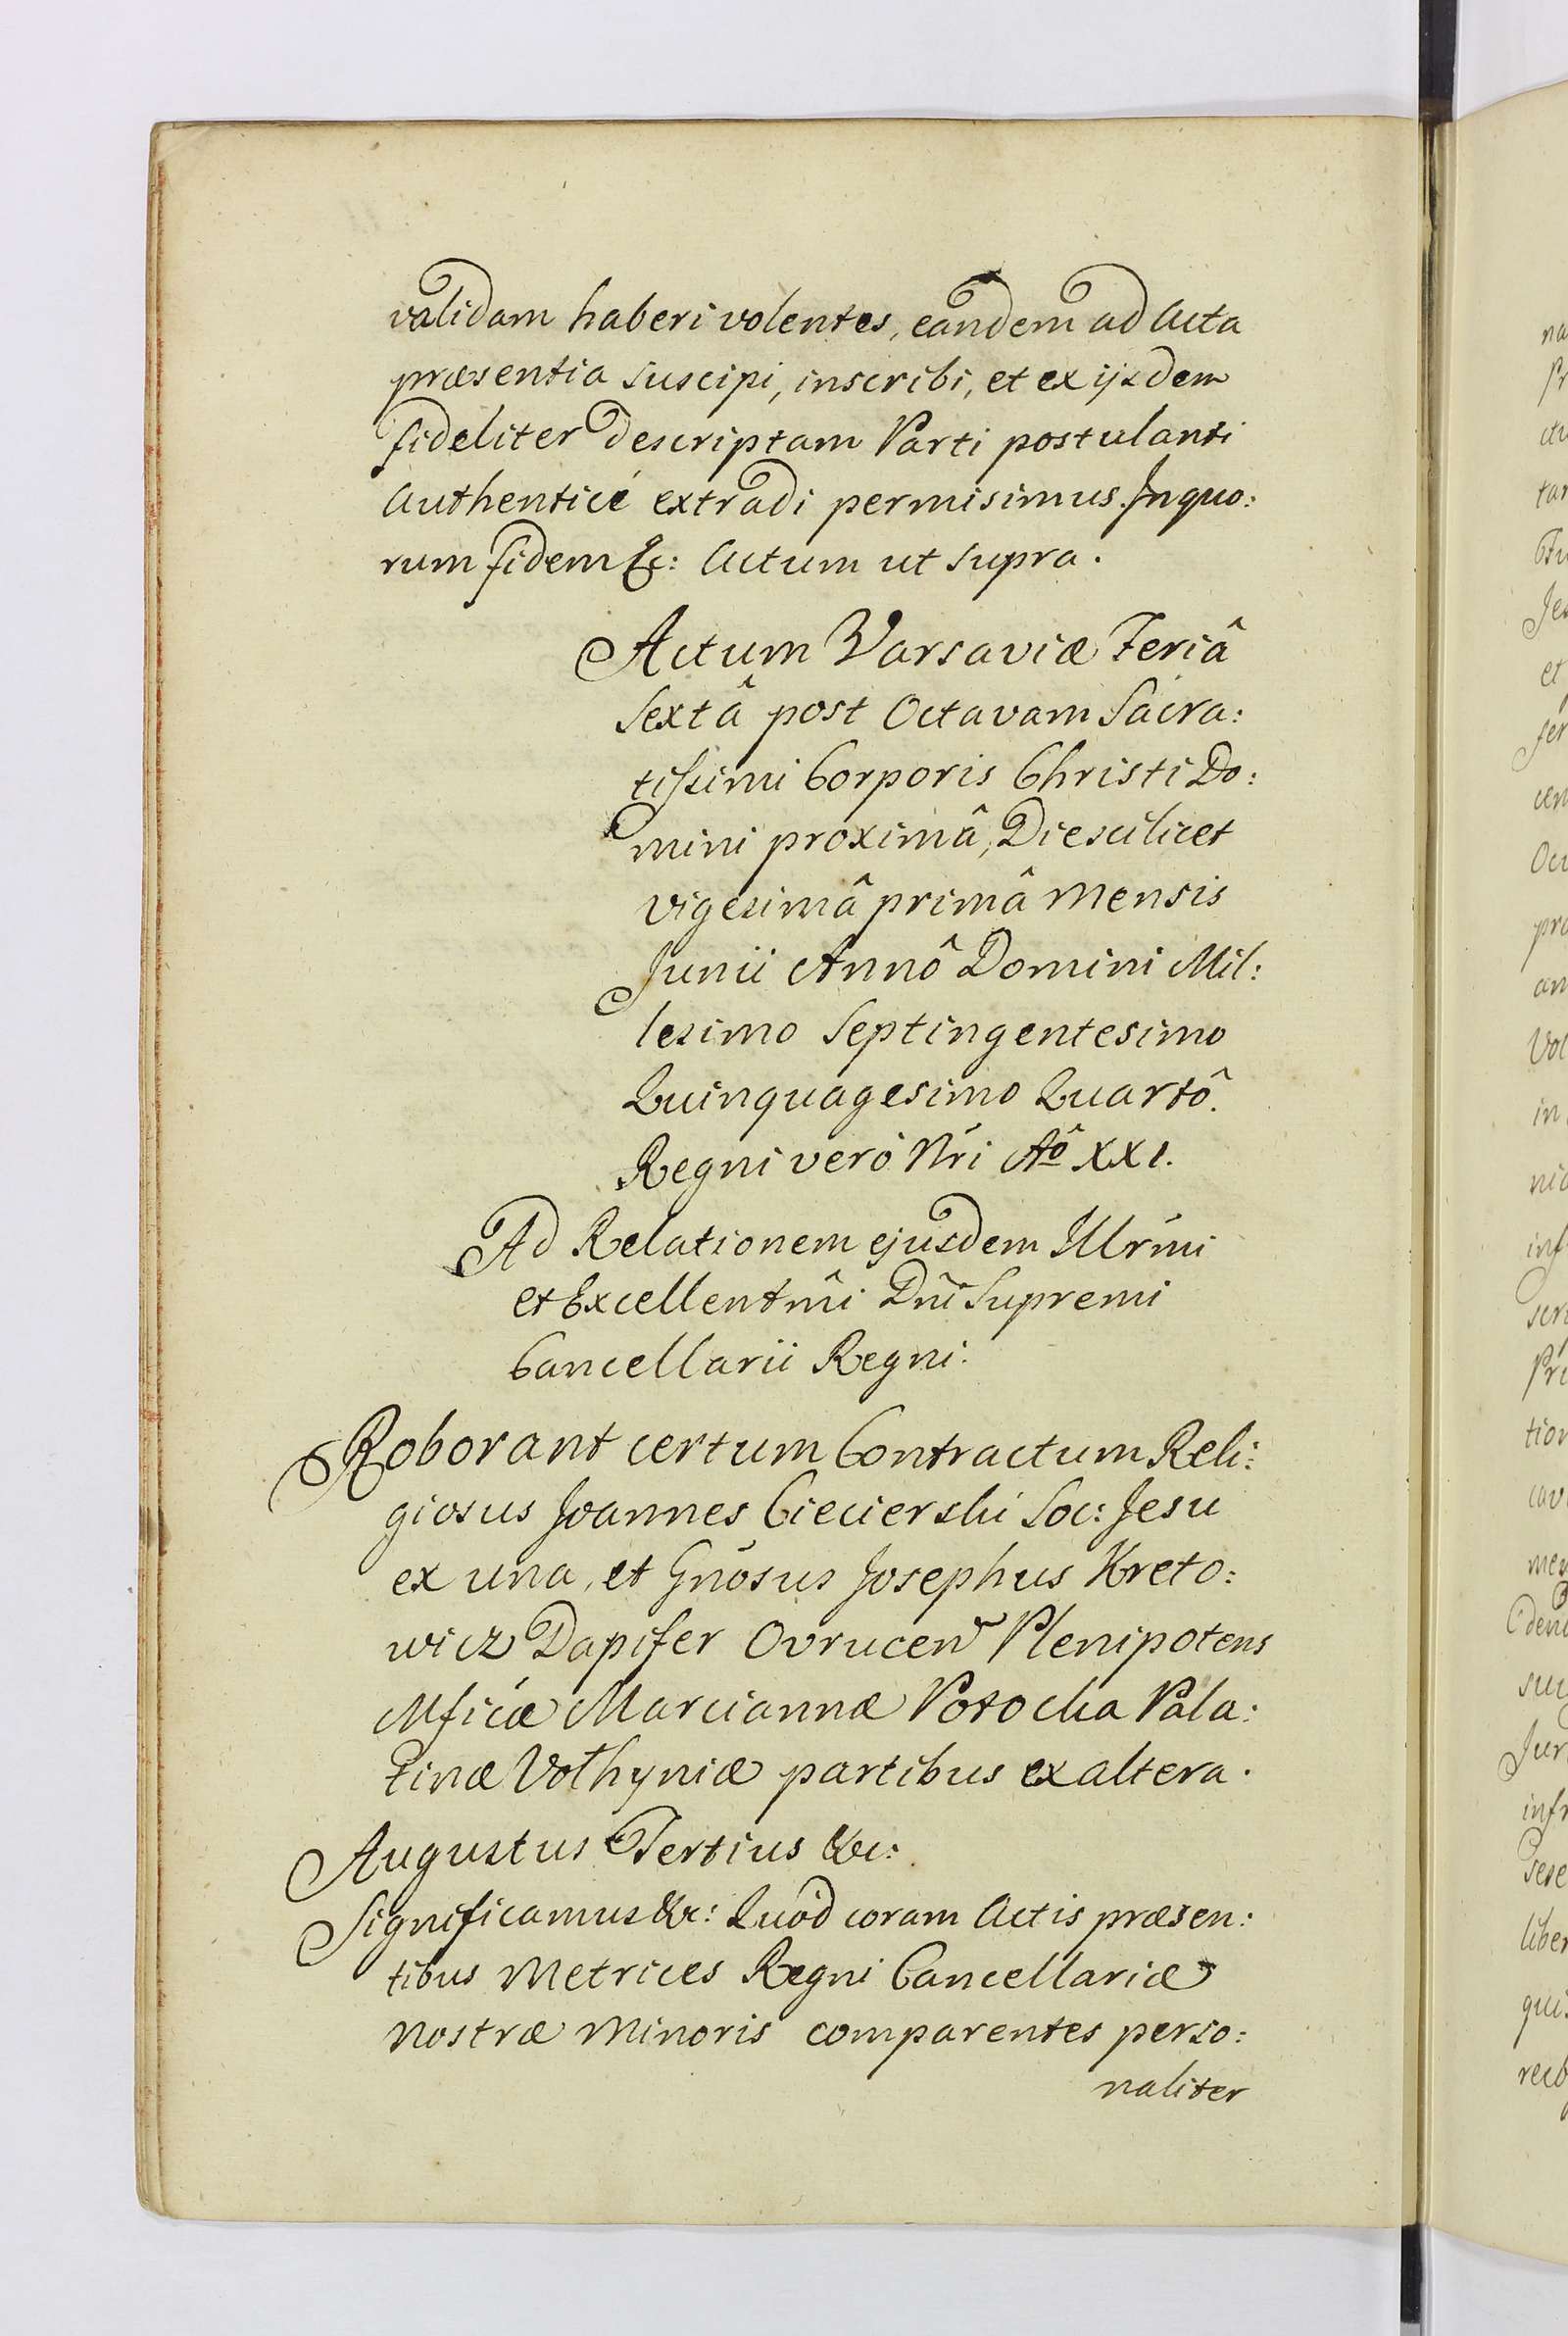 validam haberi volentes, eandem ad Acta
præsentia suscipi, inscribi, et ex ijsdem
fideliter descriptam Parti postulanti
Authenticè extradi permisimus. In quo:
rum fidem &c: Actum ut supra.
Actum Varsaviæ Feriâ
Sextâ post Octavam Sacra:
tissimi Corporis Christi Do:
mini proximâ, Die scilicet
vigesimâ primâ Mensis
Junii Annô Domini Mil:
lesimo Septingentesimo
Quinquagesimo Quartô.
Regni verò Nri Aô XXI.
Ad Relationem ejusdem Illrmi
et Excellentmi Dni Supremi
Cancellarii Regni.
Roborant certum Contractum Reli:
giosus Joannes Ciecierski Soc: Jesu
ex una, et Gnosus Josephus Kreto:
wicz Dapifer Ovrucen Plenipotens
Mficæ Marciannæ Potocka Pala:
tinæ Volhyniæ partibus ex altera.
Augustus Tertius &c:
Significamus &c: Quòd coram Actis præsen:
tibus Metrices Regni Cancellariæ
Nostræ Minoris comparentes perso:
naliter